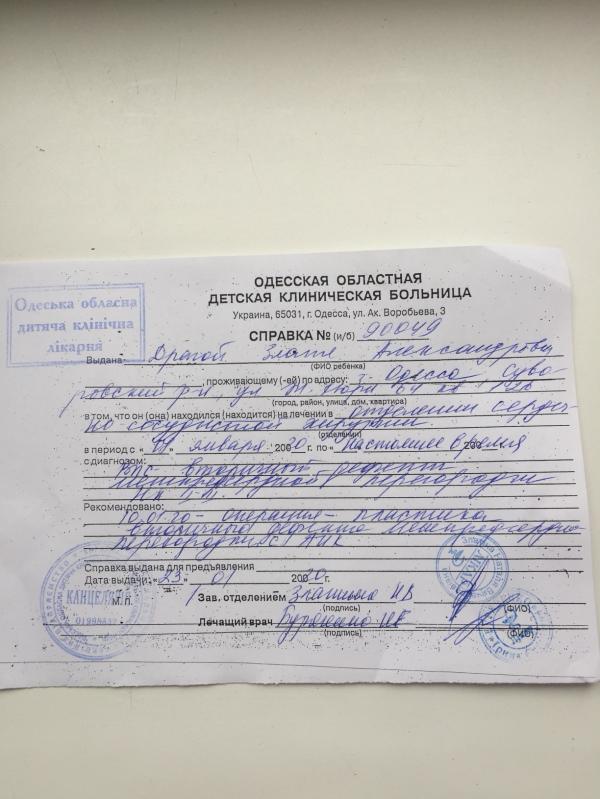 ОДЕССКАЯ ОБЛАСТНАЯ
ДЕТСКАЯ КЛИНИЧЕСКАЯ БОЛЬНИЦА
Украина, 65031, г. Одесса, ул. Ак. Воробьева, 3
Одеська обласна
дитяча клінічна
лікарня
СПРАВКА № (и/б) 90049
Выдана Драгой Злате Александровн
(ФИО ребенка)
, проживающему (-ей) по адресу: г. Одесса Суво-
ровский р-н, ул.
(город, район, улица, дом, квартира)
в том, что он (она) находился (находится) на лечении в отделении сердеч-
но сосудистой хирургии
(отделении)
в период с « » января 20020 г. по « настоящее время 200
с диагнозом: ВПС Вторичный дефект
межпредсердной перегородки
Рекомендовано:
10.01.20 - операция - пластика
вторичного дефекта межпредсердно
перегородки с АИК
Справка выдана для предъявления
Дата выдачи: «23» 01 20020 г.
КАНЦЕЛЯРІЯ
М.П.
Зав. отделением
(подпись)
(ФИО)
Лечащий врач
(подпись)
(ФИО)